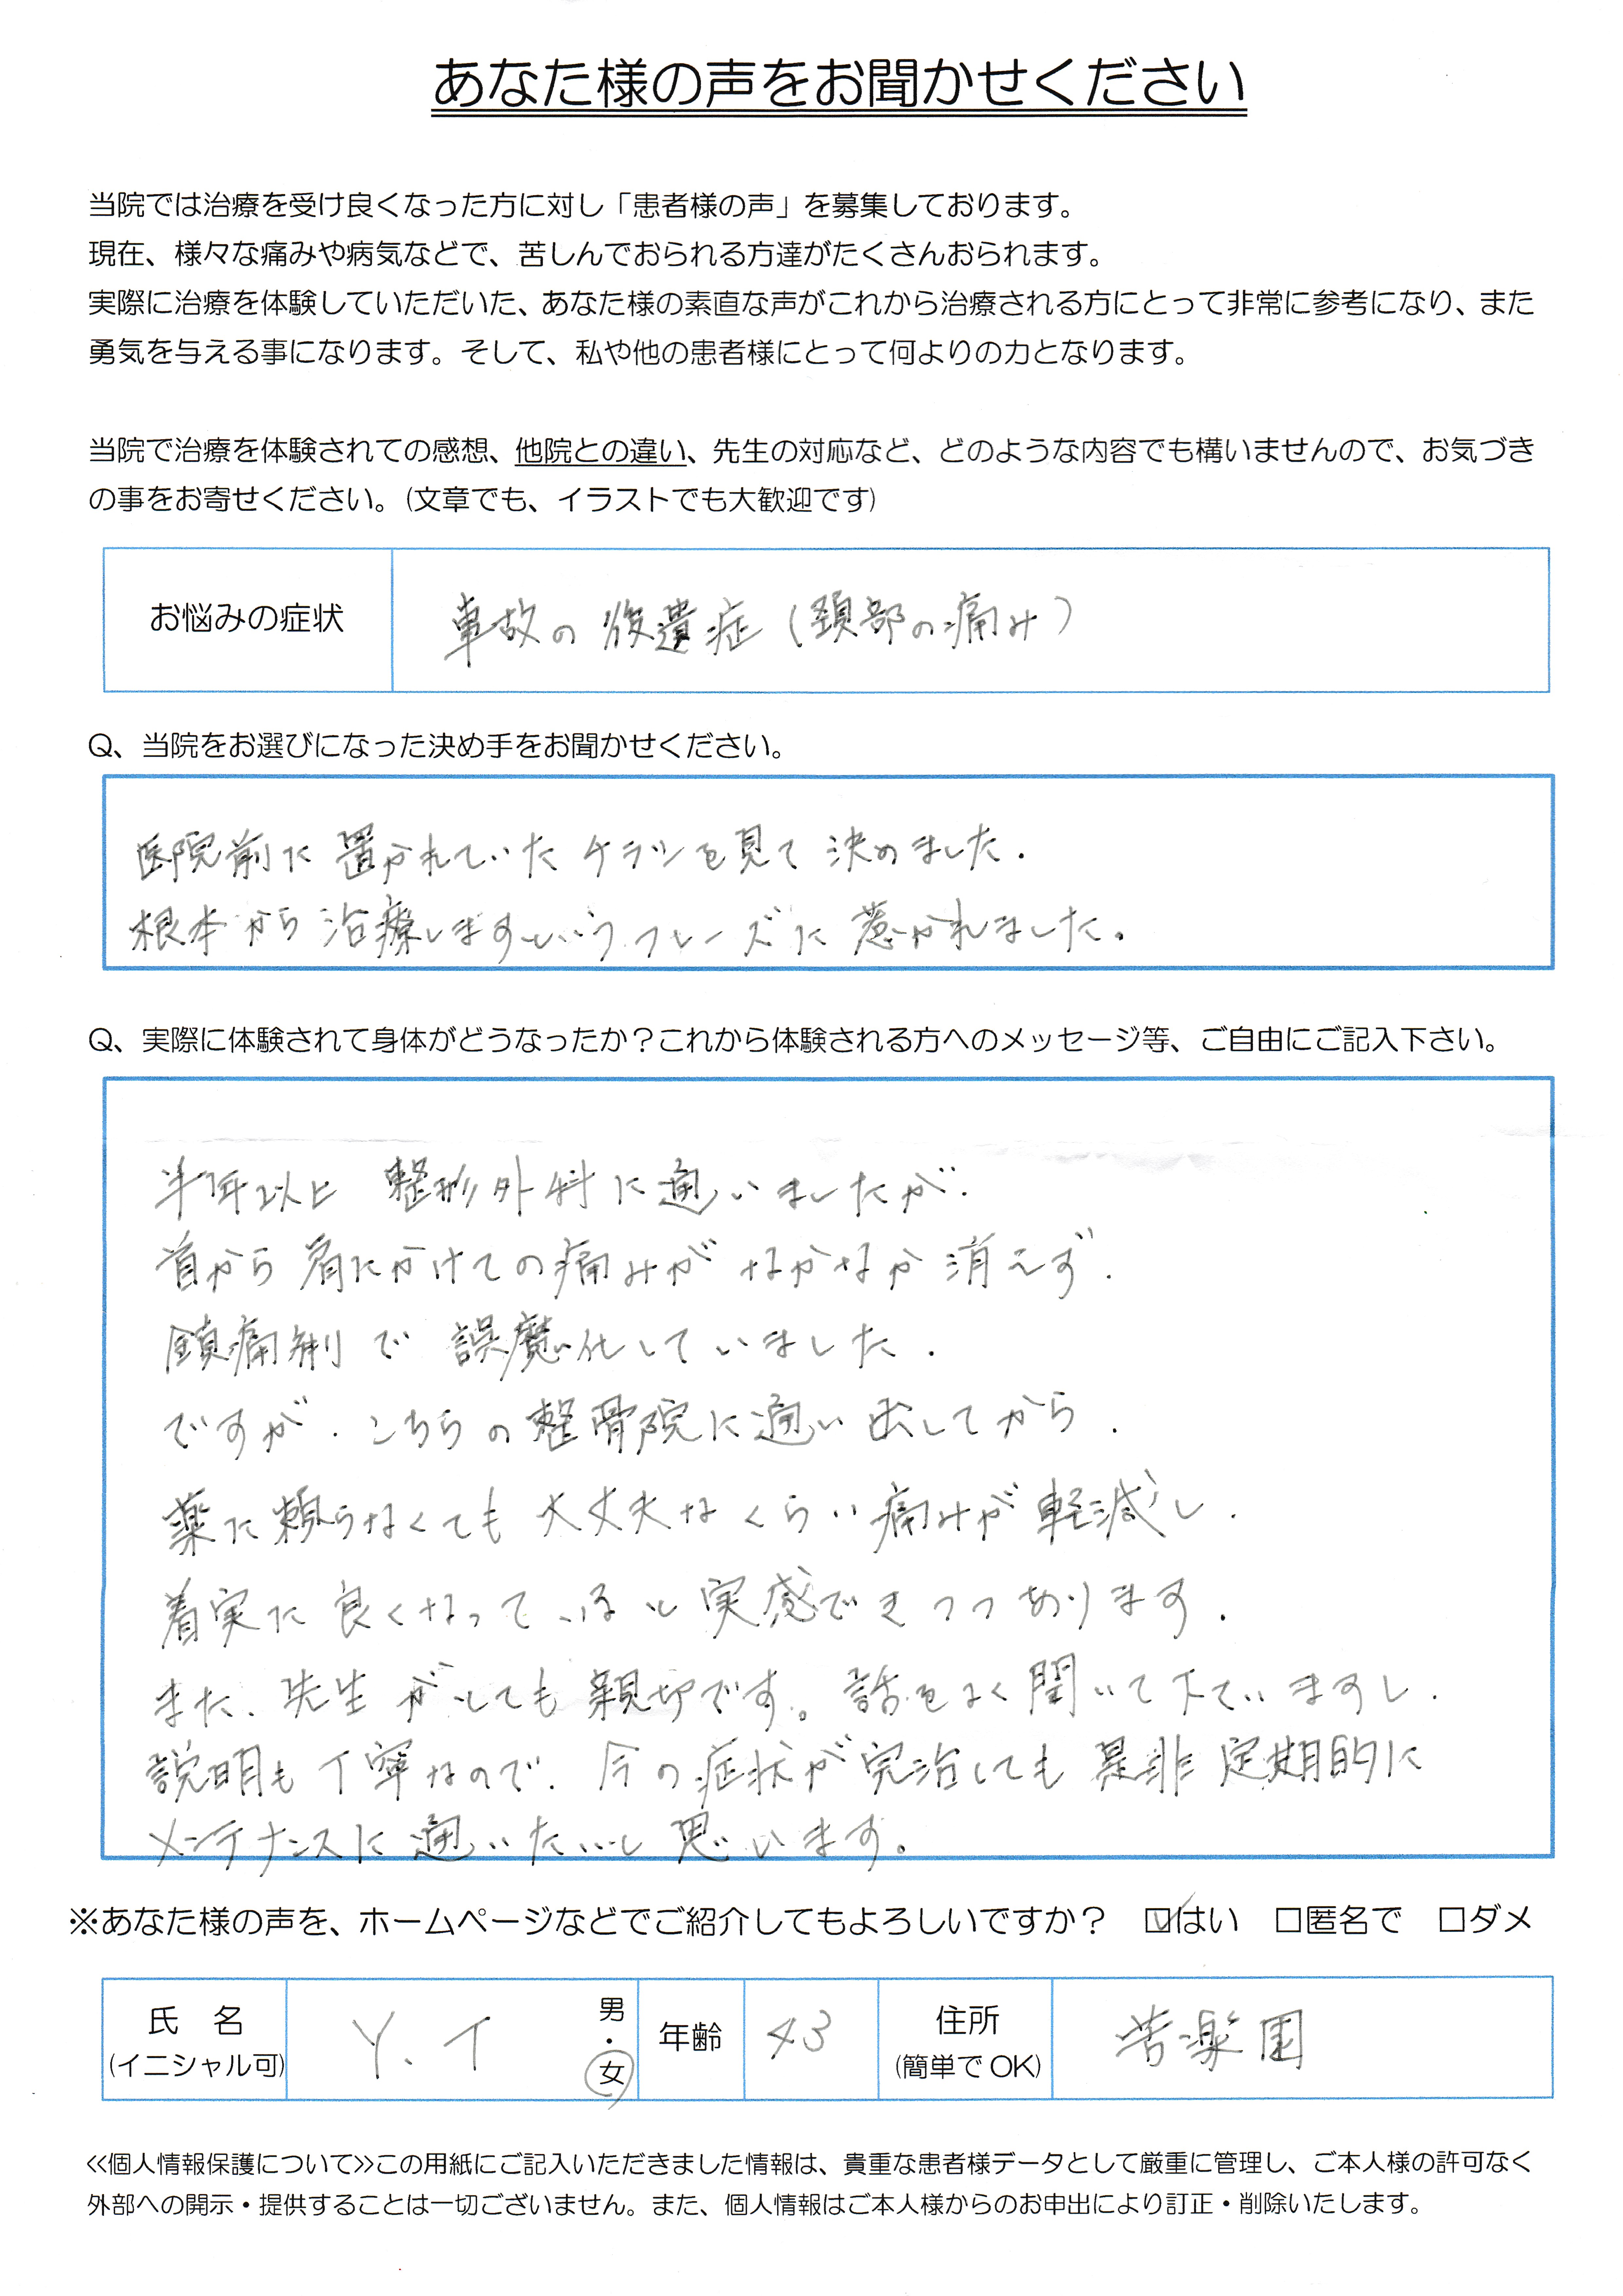 あなた様の声をお聞かせください
当院では治療を受け良くなった方に対し「患者様の声」を募集しております。
現在、様々な痛みや病気などで、苦しんでおられる方達がたくさんおられます。
実際に治療を体験していただいた、あなた様の素直な声がこれから治療される方にとって非常に参考になり、また
勇気を与える事になります。そして、私や他の患者様にとって何よりの力となります。
当院で治療を体験されての感想、他院との違い、先生の対応など、どのような内容でも構いませんので、お気づき
の事をお寄せください。(文章でも、イラストでも大歓迎です)
お悩みの症状
事故の後遺症(頚部の痛み)
Q、当院をお選びになった決め手をお聞かせください。
医院前に置かれていたチラシを見て決めました.
根本から治療しますというフレーズに惹かれました。
Q、実際に体験されて身体がどうなったか？これから体験される方へのメッセージ等、ご自由にご記入下さい。
半年以上 整形外科に通いましたが.
首から肩にかけての痛みがなかなか消えず.
鎮痛剤で誤魔化していました.
ですが.こちらの整骨院に通い出してから.
薬に頼らなくても大丈夫なくらい痛みが軽減し.
着実に良くなっていると実感できつつあります.
また、先生がとても親切です。話をよく聞いて下さいますし.
説明も丁寧なので.今の症状が完治しても是非定期的に
メンテナンスに通いたいと思います。
※あなた様の声を、ホームページなどでご紹介してもよろしいですか？ ☑はい □匿名で □ダメ
氏 名
(イニシャル可)
Y.I
男・女
年齢
43
住所
(簡単でOK)
苦楽園
≪個人情報保護について≫この用紙にご記入いただきました情報は、貴重な患者様データとして厳重に管理し、ご本人様の許可なく
外部への開示・提供することは一切ございません。また、個人情報はご本人様からのお申出により訂正・削除いたします。